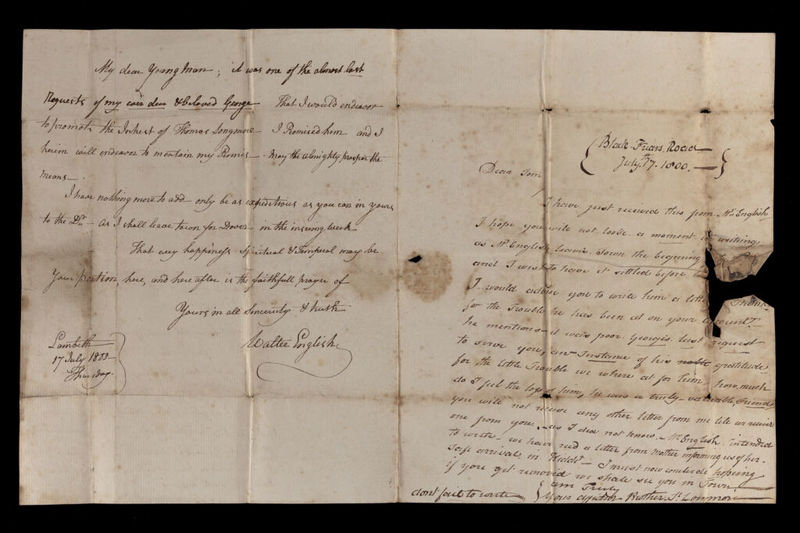 My dear Young Man, it was one of the almost last
Requests of my own dear & beloved George That I would endeavor
to promote the Intrest of Thomas Longmore I Promised him and I
herein will endeavor to mentain my Promis - may the almighty prosper the
means.
I have nothing more to add only be as expeditious as you can in yours
to the Dr. - as I shall leave town for Dover in the insuing week
That every happiness Spiritual & Temporal may be
Your portion here, and here after is the faithfull prayer of
Yours in all Sincerity & Truth
Walter English
Lambeth
17 July 1800
Thursday
Black Friars Road
July 17. 1800.
Dear Tom
I have just received this from Mr. English
I hope you will not loose a moment in writing
as Mr. English leaves Town the beginning
and I want to have it settled before
I would advise you to write him a letter Thank
for the trouble he has been at on your account
he mentions it was poor George's last request
to serve you, an Instance of his noble gratitude
for the little Trouble we where at for him how much
do I feel the loss of him, he was a truly valuable friend
you will not receive any other letter from me till we receive
one from you as I did not know Mr. English intended
to write - we have red a letter from Mother informing us of her
safe arrival in Kiddr. - I must now conclude hopeing
if you get removed we shall see you in Town
I am Truly
Your affectn Brother Js. Longmore
dont fail to write